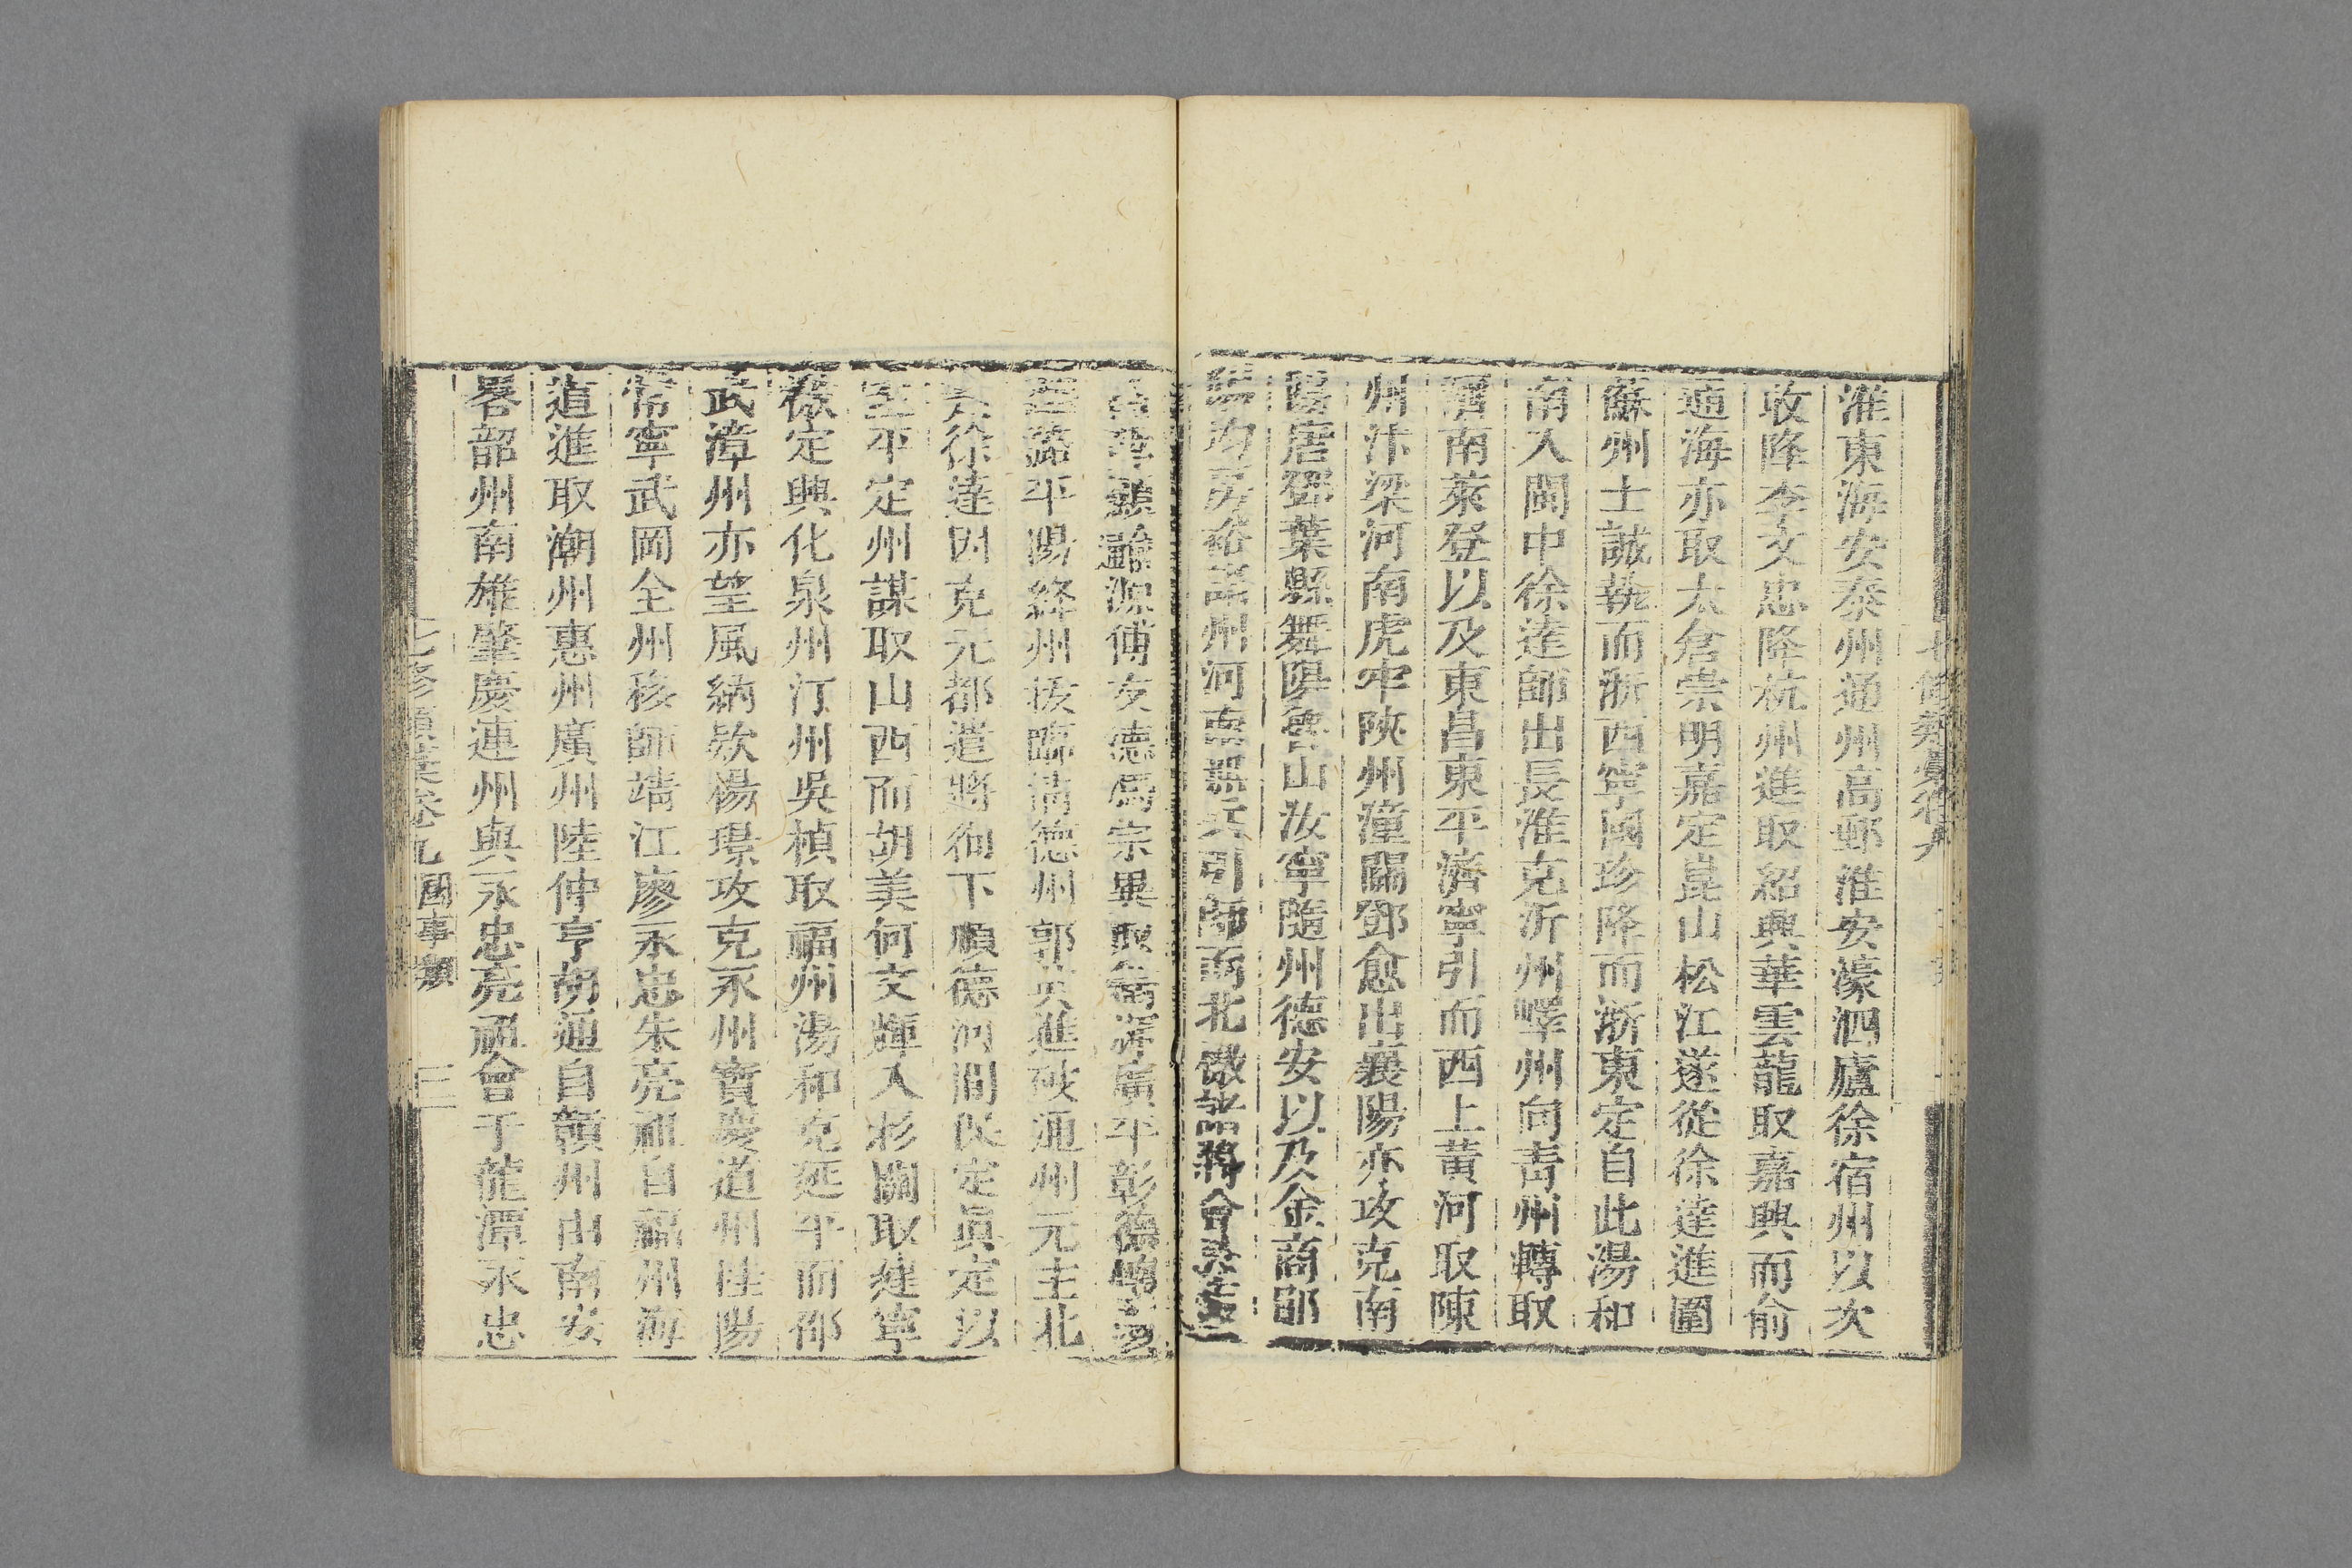 淮東海安泰州通州高郵淮安濠泗廬徐宿州以次
收降李文忠降杭州進取紹興華雲龍取嘉興而俞
通海亦取太倉崇明嘉定崑山松江遂從徐達進圍
蘇州士誠執而浙西寧國珍降而浙東定自此湯和
南入閩中徐達師出長淮克沂州嶧州向青州轉取
濟南萊登以及東昌東平濟寧引而西上黃河取陳
州汴梁河南虎牢陝州潼關鄧愈出襄陽亦攻克南
陽唐鄧葉縣舞陽魯山汝寧隨州德安以及金商郧
均房裕諸州河南罷兵引師而北檄諸將會
傅友德為取衛輝廣平彰德
潞平陽絳州援臨清德州郭英進破通州元主北
徐達因克元都遣將徇下順德河間保定眞定以
平定州謀取山西而胡美何文輝入杉關取建寧
定興化泉州汀州吳楨取福州湯和克延平而邵
武漳州亦望風納欵楊璟攻克永州寶慶道州桂陽
常寧武岡全州移師靖江廖永忠朱亮祖自福州海
道進取潮州惠州廣州陸仲亨胡通自贛州由南安
畧韶州南雄肇慶連州與永忠亮祖會于龍潭永忠
七修類稾卷九 國事類 三